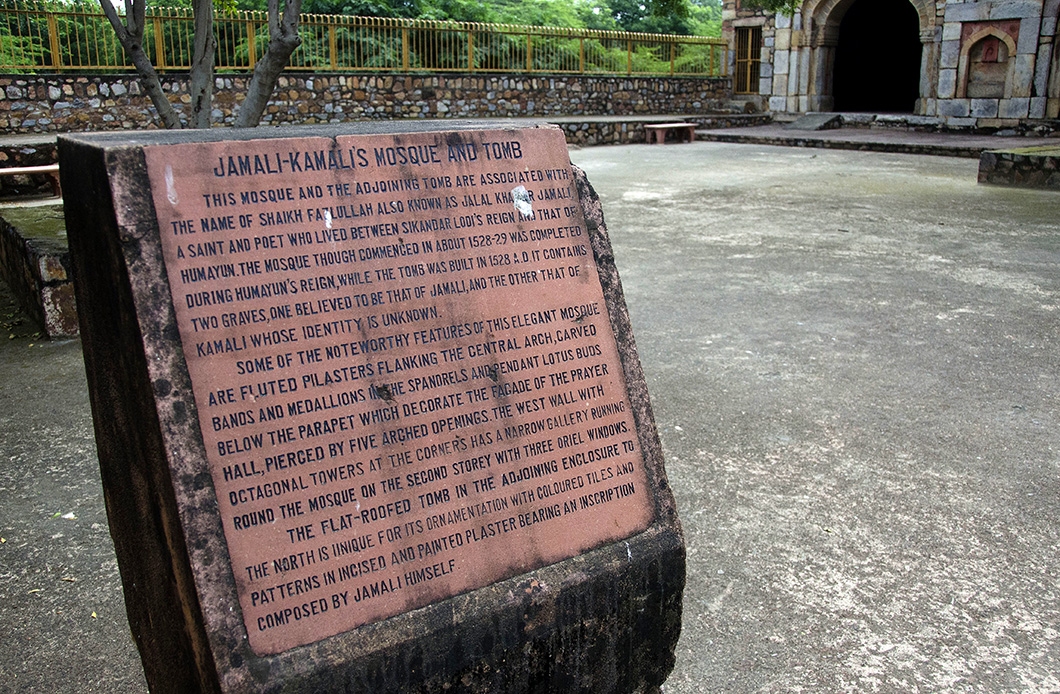 JAMALI-KAMALI'S MOSQUE AND TOMB
THIS MOSQUE AND THE ADJOINING TOMB ARE ASSOCIATED WITH
THE NAME OF SHAIKH FAZLULLAH ALSO KNOWN AS JALAL KHAN OR JAMALI,
A SAINT AND POET WHO LIVED BETWEEN SIKANDAR LODI'S REIGN AND THAT OF
HUMAYUN. THE MOSQUE THOUGH COMMENCED IN ABOUT 1528-29 WAS COMPLETED
DURING HUMAYUN'S REIGN, WHILE THE TOMB WAS BUILT IN 1528 A.D. IT CONTAINS
TWO GRAVES, ONE BELIEVED TO BE THAT OF JAMALI, AND THE OTHER THAT OF
KAMALI WHOSE IDENTITY IS UNKNOWN.
SOME OF THE NOTEWORTHY FEATURES OF THIS ELEGANT MOSQUE
ARE FLUTED PILASTERS FLANKING THE CENTRAL ARCH, CARVED
BANDS AND MEDALLIONS IN THE SPANDRELS AND PENDANT LOTUS BUDS
BELOW THE PARAPET WHICH DECORATE THE FACADE OF THE PRAYER
HALL, PIERCED BY FIVE ARCHED OPENINGS. THE WEST WALL WITH
OCTAGONAL TOWERS AT THE CORNERS HAS A NARROW GALLERY RUNNING
ROUND THE MOSQUE ON THE SECOND STOREY WITH THREE ORIEL WINDOWS.
THE FLAT-ROOFED TOMB IN THE ADJOINING ENCLOSURE TO
THE NORTH IS UNIQUE FOR ITS ORNAMENTATION WITH COLOURED TILES AND
PATTERNS IN INCISED AND PAINTED PLASTER BEARING AN INSCRIPTION
COMPOSED BY JAMALI HIMSELF.